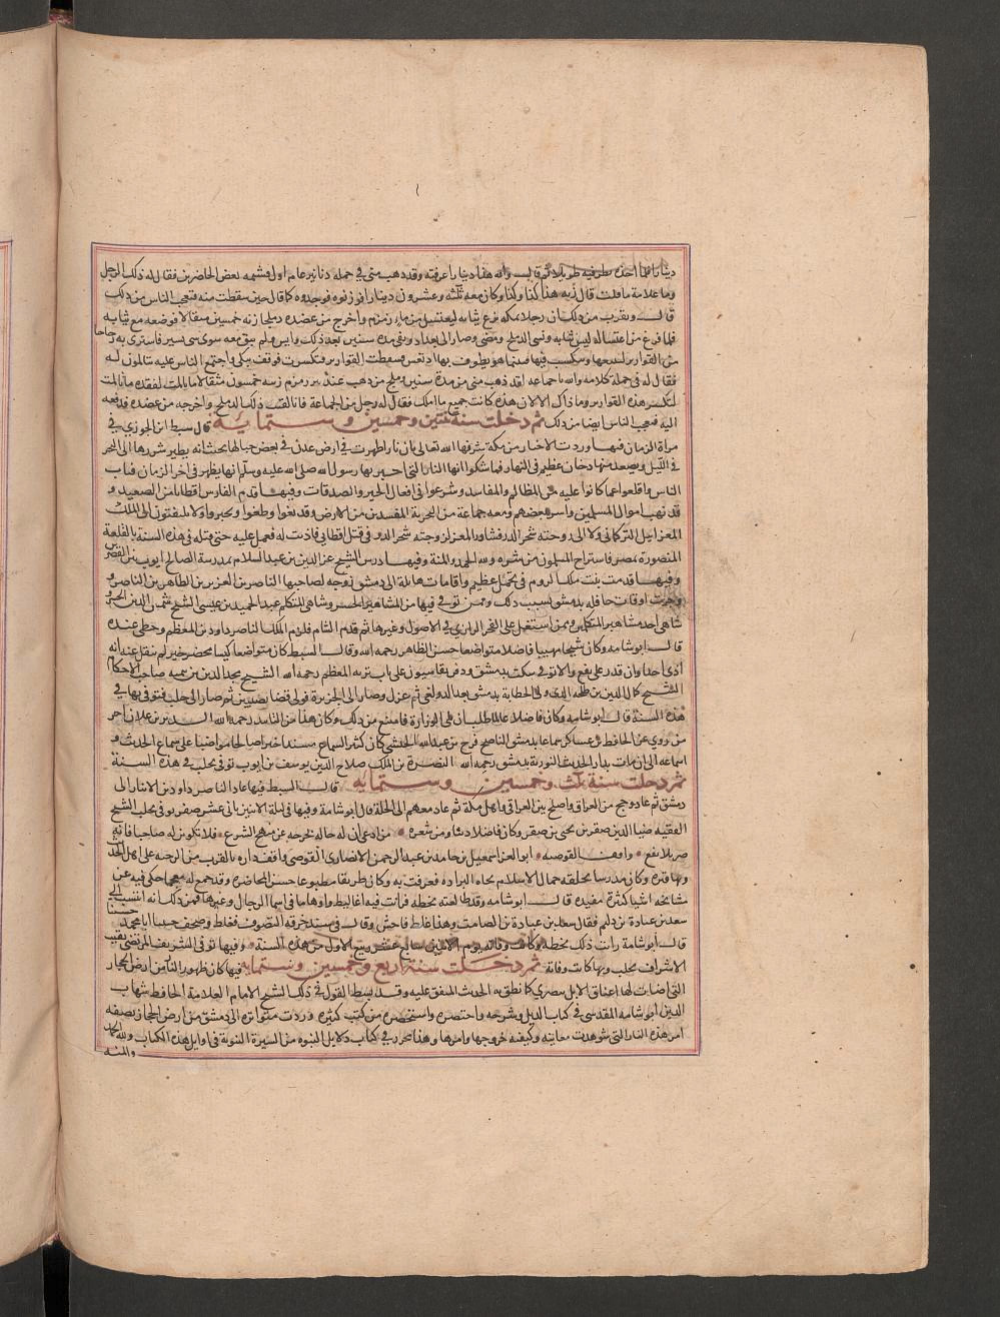 دينارا فلما اخذه نظر فيه طويلا ثم قالت والله هذا دينار اعرفته وقد ذهب مني في جملة دنانير عام اول فشتمه بعض الحاضرين فقال له ذلك الرجل
وما علامة ما قلت قال زنه هذا كذا وكذا وكان معه ثلثة وعشرون دينارا فوزنوه فوجدوه كما قال حين سقطت منه فتعجب الناس من ذلك
قالت ويقرب من ذلك ان رجلا بمكة نزع ثيابه ليغتسل من ماء زمزم واخرج من عضده دملجا زنه خمسين مثقالا فوضعه مع ثيابه
فلما فرغ من اغتساله لبس ثيابه ونسي الدملج ومضى وصار الى بغداد وبقي مدة سنتين بعد ذلك وايس ولم يبق معه سوى شي يسير فاشترى به زجاجا
من القوارير ليبيعها ويكسب فيها فبينما هو يطوف بها اذ زلق فسقطت القوارير فتكسرت فوقف يبكي واجتمع الناس عليه يتالمون له
فقال له في جملة كلامه والله يا جماعة لقد ذهب مني من مدة سنتين دملج من ذهب عند بير زمزم زنته خمسون مثقالا ما باليت لفقده ما باليت
لتكسر هذه القوارير وما ذاك الا لان هذه كانت جميع ما املك فقال له رجل من الجماعة فانا لقيت ذلك الدملج واخرجه من عضده فدفعه
اليه فتعجب الناس ايضا من ذلك ثم دخلت سنة ثنتين وخمسين وستمايه قال سبط ابن الجوزي في
مراة الزمان فيها وردت الاخبار من مكة شرفها الله تعالى بان نارا ظهرت في ارض عدن في بعض جبالها بحيث انه يطير شررها الى البحر
في الليل ويصعد منها دخان عظيم في النهار فما شكوا انها النار التي اخبر بها رسول الله صلى الله عليه وسلم انها يظهر في اخر الزمان فتاب
الناس واقلعوا عما كانوا عليه من المظالم والمفاسد وشرعوا في افعال الخير والصدقات وفيهـا قدم الفارس اقطاى من الصعيد و
قد نهب اموال المسلمين واسر بعضهم ومعه جماعة من البحرية المفسدين من الارض وقد بغوا وطغوا وتجبروا ولا يلتفتون الى الملك
المعز ايبك التركماني ولا الى زوجته شجر الدر فشاور المعز زوجته شجر الدر في قتل اقطاي فاذنت له فعمل عليه حتى قتله في هذه السنة بالقلعة
المنصورة بمصر فاستراح المسلمون من شره ولله الحمد والمنة وفيهـا درس الشيخ عز الدين بن عبد السلام بمدرسة الصالح ايوب بين القصرين
وفيهـا قدمت بنت ملك الروم في تجمل عظيم واقامات هائلة الى دمشق زوجه لصاحبها الناصر بن العزيز بن الظاهر بن الناصر و
وجرت اوقات حافله بدمشق بسبب ذلك وممن توفي فيها من المشاهير الخسروشاهي المتكلم عبد الحميد بن عيسى الشيخ شمس الدين الخسرو
شاهي احد مشاهير المتكلمين وممن اشتغل على الفخر الرازي في الاصول وغيرها ثم قدم الشام فلزم الملك الناصر داود بن المعظم وحظي عنده
قالت ابو شامه وكان شيخا مهيبا فاضلا متواضعا حسن الظاهر رحمه الله وقالت السبط كان متواضعا كيسا محضر خير لم ينقل عنه انه
اذى احدا وان قدر على نفع والا توفي سكت بدمشق ودفن بقاسيون على باب تربة المعظم رحمه الله الشيخ مجد الدين بن تيمية صاحب الاحكام
الشيخ كمال الدين بن طلحة الذي ولي الخطابة بدمشق بعد الدولعي ثم عزل وصار الى الجزيرة فولي قضا نصيبين ثم صار الى حلب فتوفي بها في
هذه السنة قالت ابو شامه وكان فاضلا عالما طلب ان يلي الوزارة فامتنع من ذلك وكان هذا من التاييد رحمه الله السديد بن علان اخر
من روى عن الحافظ بن عساكر سماعا بدمشق الناصح فرج بن عبد الله الحبشي كان كثير السماع مسندا خيرا صالحا مواظبا على سماع الحديث و
اسماعه الى ان مات بدار الحديث النورية بدمشق رحمه الله النصرة بن الملك صلاح الدين يوسف بن ايوب توفي بحلب في هذه السنة
ثم دخلت سنة ثلث وخمسين وستمايه قالت السبط فيها عاد الناصر داود من الانبار الى
دمشق ثم عاد وحج من العراق واصلح بين العراقي واهل مكة ثم عاد معهم الى الحلة قال ابو شامة وفيها في ليلة الاثنين ثاني عشر صفر توفي بحلب الشيخ
الفقيه ضيا الدين صقر بن يحيى بن صقر وكان فاضلا دينا ومن شعره • من ادعى ان له حاله تخرجه عن منهج الشرع • فلا تكونن له صاحبا فانه
ضر بلا نفع • واقف القوصيه • ابو العز اسمعيل بن حامد بن عبد الرحمن الانصاري القوصي واقف داره بالقرب من الرحبه على اهل الحديث
وبها قبره وكان مدرسا بحلقه جمال الاسلام تجاه البراده فعرفت به وكان ظريفا مطبوعا حسن المحاضره وقد جمع له معجما حكى فيه عن
مشايخه اشيا كثيرة مفيده قالت ابو شامه وقد طالعته بخطه فرايت فيه اغاليط واوهاما في اسما الرجال وغيرها فمن ذلك انه انتسب الى
سعد بن عبادة بن دليم فقال سعد بن عبادة بن الصامت وهذا غلط فاحش وقال في سند خرقه التصوف فغلط وصحف حبيبا ابا محمد حسينا
قالت ابو شامة رايت ذلك بخطه وكانت وفاته يوم الاثنين سابع عشر ربيع الاول من هذه السنة • وفيها توفي الشريف المرتضى نقيب
الاشراف بحلب وبها كانت وفاته ثم دخلت سنة اربع وخمسين وستمايه فيها كان ظهور النار من ارض الحجاز
التي اضات لها اعناق الابل ببصري كما نطق به الحديث المتفق عليه وقد بسط القول في ذلك الشيخ الامام العلامة الحافظ شهاب
الدين ابو شامه المقدسي في كتاب الذيل وشرحه واختصره واستحضره من كتب كثيره وردت متواتره الى دمشق من ارض الحجاز بصفه
امر هذه النار التي شوهدت معاينه وكيفيه خروجها وامرها وهذا محرر في كتاب دلايل النبوه من السيرة النبويه في اوايل هذه الكتاب ولله الحمد
والمنه